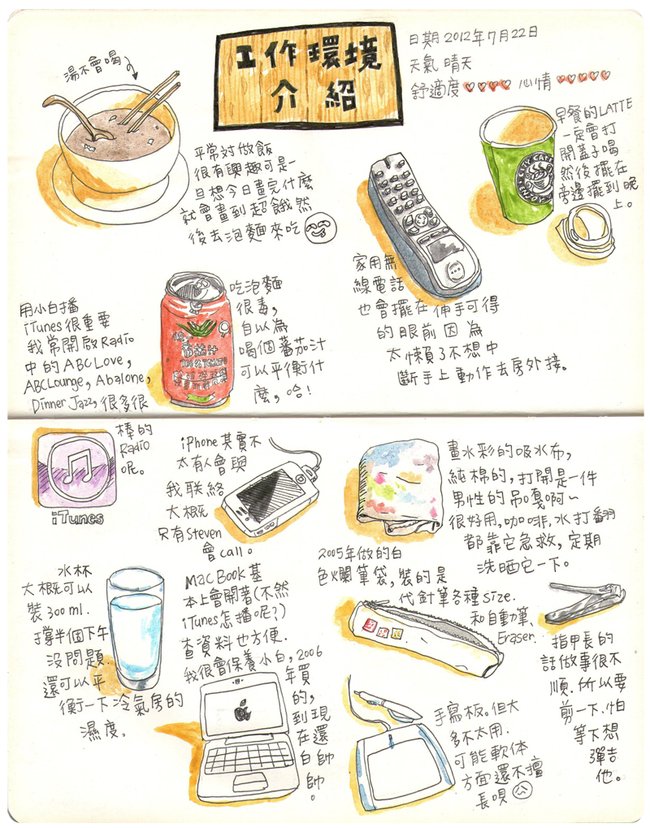 工作環境
介紹
日期 2012年7月22日
天氣 晴天
舒適度 ♥♥♥♥ 心情 ♥♥♥♥♥
湯不會喝
平常對做飯
很有興趣可是一
旦想今日畫完什麼
就會畫到超餓然
後去泡麵來吃
早餐的LATTE
一定會打
開蓋子喝
然後擺在
旁邊擺到晚
上。
家用無
線電話
也會擺在伸手可得
的眼前因為
太懶了不想中
斷手上動作去房外接。
吃泡麵
很毒,
自以為
喝個蕃茄汁
可以平衡什
麼,哈!
用小白播
iTunes很重要
我常開啟Radio
中的ABCLove,
ABCLounge, Abalone,
Dinner Jazz,很多很
棒的
Radio
呢。
iTunes
iPhone其實不
太有人會與
我聯絡
大概
只有Steven
會call。
畫水彩的吸水布,
純棉的,打開是一件
男性的吊嘎啊~
很好用,咖啡,水打翻
都靠它急救,定期
洗晒它一下。
水杯
大概可以
裝300ml.
撐半個下午
沒問題.
還可以平
衡一下冷氣房的
濕度.
MacBook基
本上會開著(不然
iTunes怎播呢?)
查資料也方便.
我很會保養小白,2006
年買
的,
到現
在還
白帥
帥。
2005年做的白
色火鍋筆袋,裝的是
代針筆各種size.
和自動筆,
Eraser.
指甲長的
話做事很不
順.所以要
剪一下.怕
等下想
彈吉
他。
手寫板。但大
多不太用.
可能軟体
方面還不擅
長唄